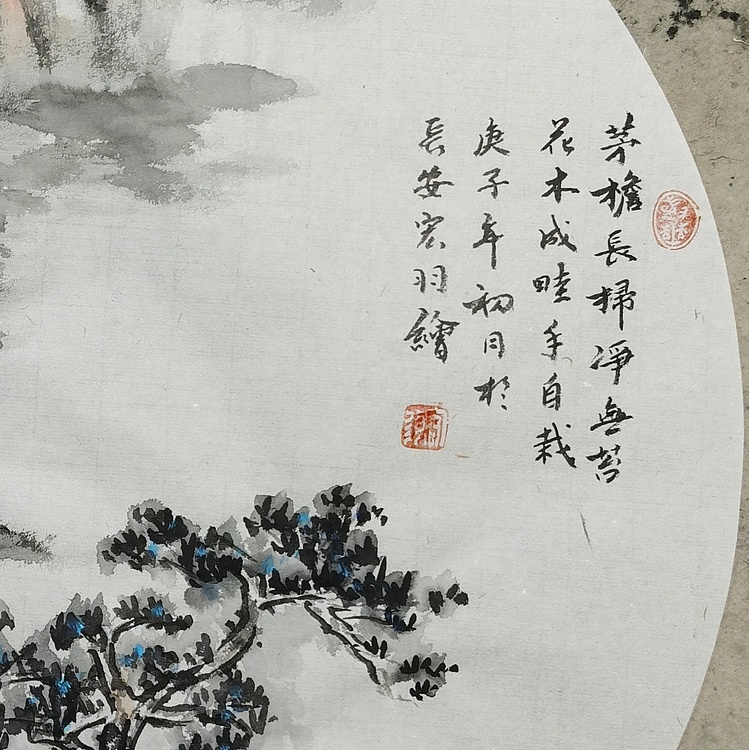 茅檐長掃凈無苔
花木成畦手自栽
庚子年初月於
長安宏羽繪